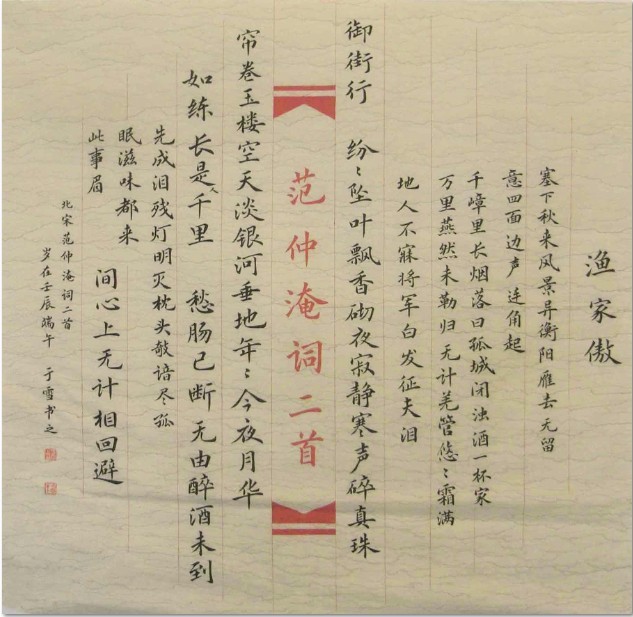 渔家傲
塞下秋来风景异衡阳雁去无留
意四面边声连角起
千嶂里长烟落日孤城闭浊酒一杯家
万里燕然未勒归无计羌管悠〻霜满
地人不寐将军白发征夫泪
御街行 纷〻坠叶飘香砌夜寂静寒声碎真珠
范仲淹词二首
帘卷玉楼空天淡银河垂地年〻今夜月华
如练长是人千里 愁肠已断无由醉酒未到
先成泪残灯明灭枕头敧谙尽孤
眠滋味都来
此事眉 间心上无计相回避
北宋范仲淹词二首
岁在壬辰端午 于雪书之